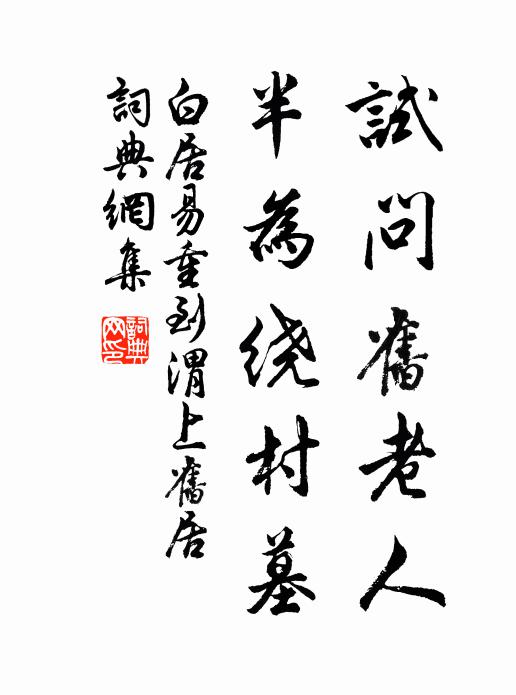 試問舊老人
半為繞村墓
白居易重到渭上舊居
詞典網集
詞典
网印